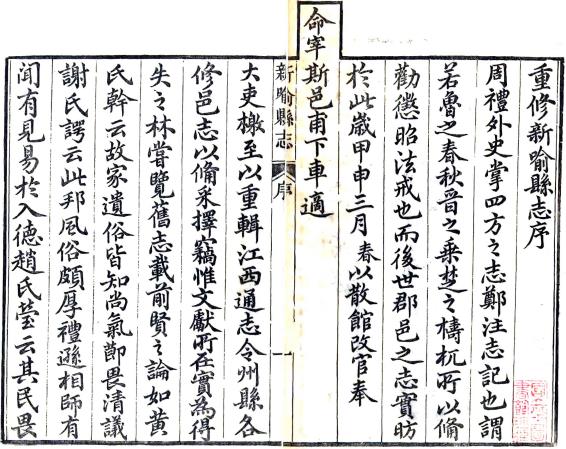 重修新喻縣志序
周禮外史掌四方之志鄭注志記也謂
若魯之春秋晉之乘楚之檮杌所以備
勸懲昭法戒也而後世郡邑之志實昉
於此歲甲申三月春以散館改官奉
命宰斯邑甫下車適
新喻縣志 序 一
大吏檄至以重輯江西通志令州縣各
修邑志以備采擇竊惟文獻所在實為得
失之林嘗覽舊志載前賢之論如黄
氏榦云故家遺俗皆知尚氣節畏清議
謝氏諤云此邦風俗頗厚禮遜相師有
聞有見易於入德趙氏瑩云其民畏